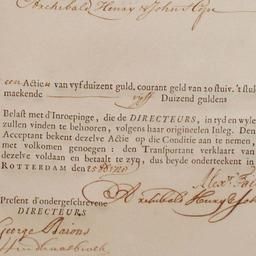 Archibald Henry & John Hope
een Actie van vyf duizent guld. courant geld van 20 stuiv. 't stuk
makende vyff Duizend guldens
Belast met d'Inroepinge, die de DIRECTEURS, in tyd en wyle
zullen vinden te behooren, volgens haar origineelen Inleg. Den
Acceptant bekent dezelve Actie op die Conditie aan te nemen,
met volkomen genoegen: den Transportant verklaart van
dezelve voldaan en betaalt te zyn, dus beyde onderteekent in
ROTTERDAM den 1720
Present d'ondergeschreve
DIRECTEURS
Alexr
Archibald Henry & John
George Baions